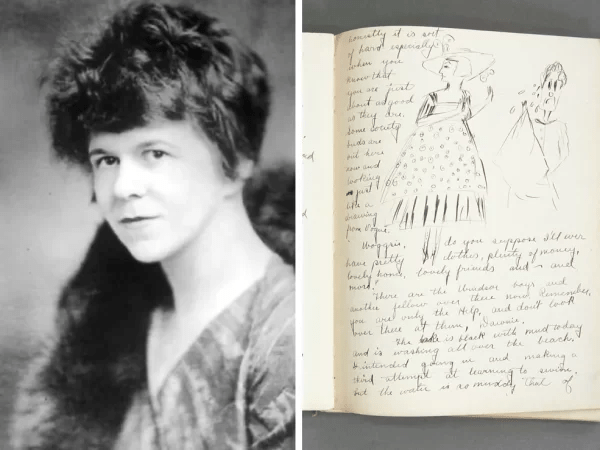 honestly it is sort
of hard especially
when you
know that
you are just
about as good
as they are.
Some society
buds are
out here
now and
looking
just
like a
drawing
from Vogue.
Woggins, do you suppose I'll ever
have pretty clothes, plenty of money,
lovely home, lovely friends and – and
more?
There are the boys and
another fellow over there now. Remember,
you are only the Help, and don't look
over there at them, Dawnie.
The lake is black with mud today
and is washing all over the beach.
I intended going in and making a
third attempt at learning to swim.
but the water is so muddy that of